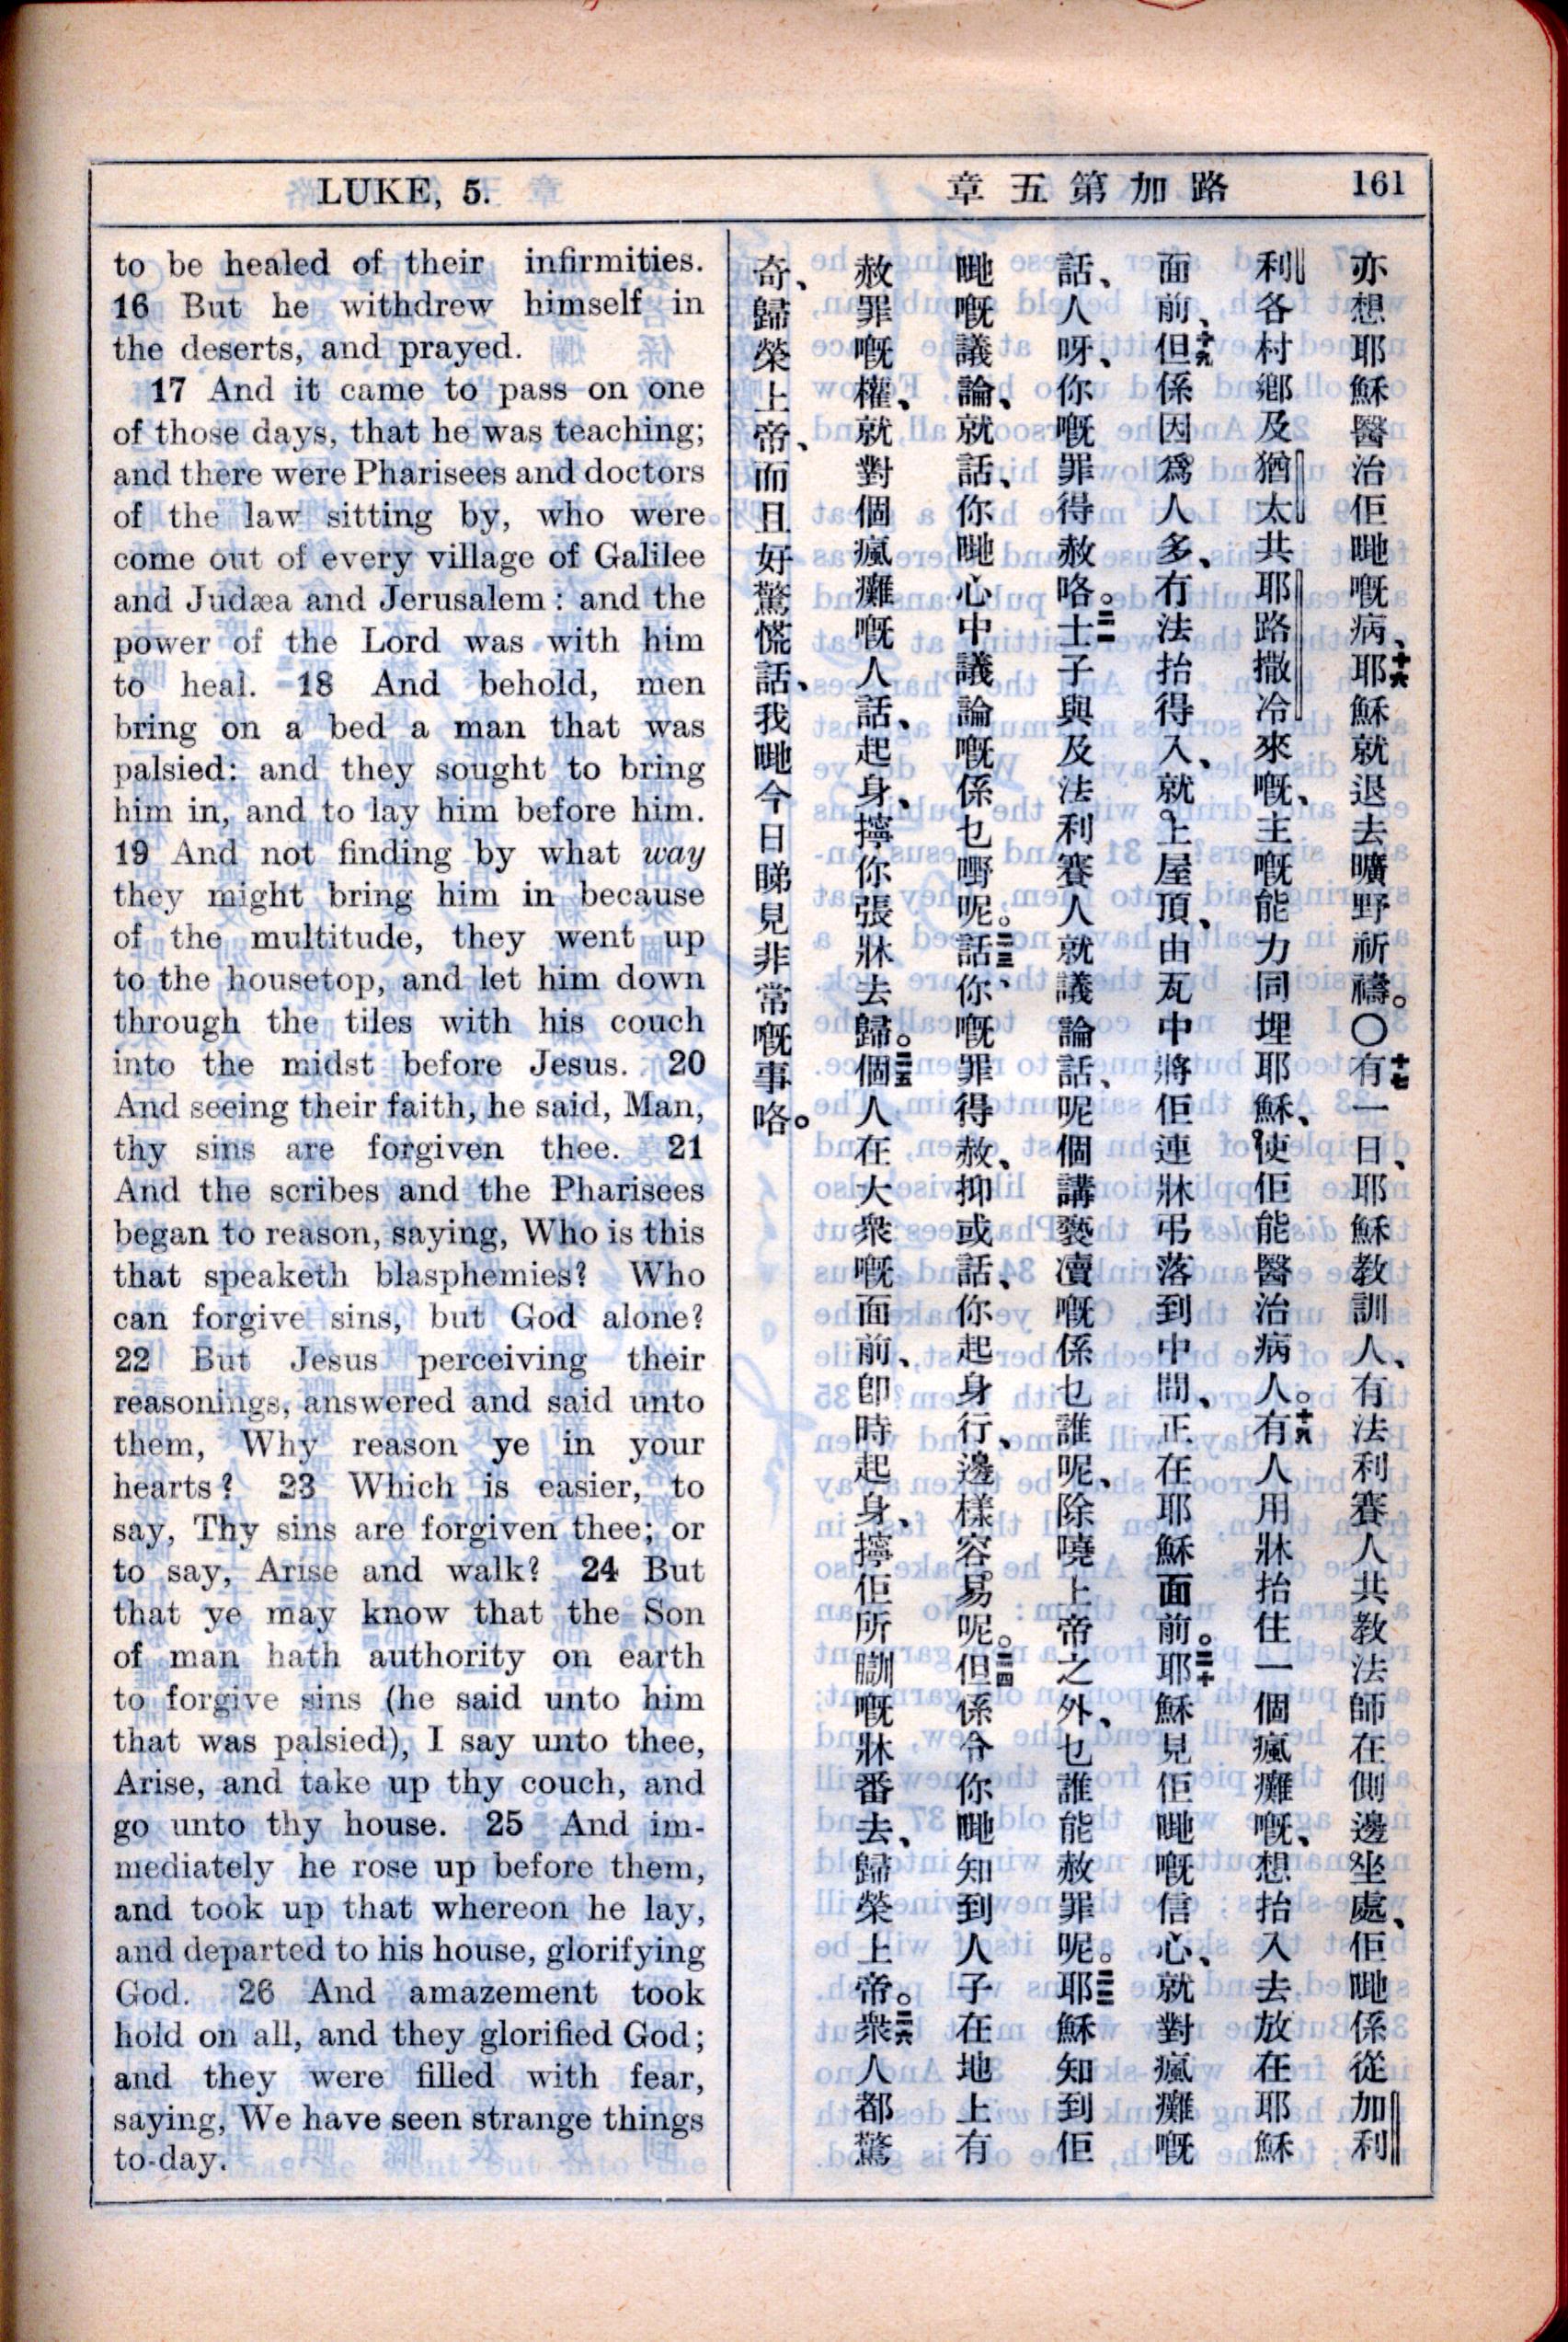 LUKE, 5.
路加第五章
161
to be healed of their infirmities.
16 But he withdrew himself in
the deserts, and prayed.
17 And it came to pass on one
of those days, that he was teaching;
and there were Pharisees and doctors
of the law sitting by, who were
come out of every village of Galilee
and Judæa and Jerusalem: and the
power of the Lord was with him
to heal. 18 And behold, men
bring on a bed a man that was
palsied: and they sought to bring
him in, and to lay him before him.
19 And not finding by what way
they might bring him in because
of the multitude, they went up
to the housetop, and let him down
through the tiles with his couch
into the midst before Jesus. 20
And seeing their faith, he said, Man,
thy sins are forgiven thee. 21
And the scribes and the Pharisees
began to reason, saying, Who is this
that speaketh blasphemies? Who
can forgive sins, but God alone?
22 But Jesus perceiving their
reasonings, answered and said unto
them, Why reason ye in your
hearts? 23 Which is easier, to
say, Thy sins are forgiven thee; or
to say, Arise and walk? 24 But
that ye may know that the Son
of man hath authority on earth
to forgive sins (he said unto him
that was palsied), I say unto thee,
Arise, and take up thy couch, and
go unto thy house. 25 And im-
mediately he rose up before them,
and took up that whereon he lay,
and departed to his house, glorifying
God. 26 And amazement took
hold on all, and they glorified God;
and they were filled with fear,
saying, We have seen strange things
to-day.
亦想耶穌醫治佢哋嘅病、十六耶穌就退去曠野祈禱。〇十七有一日、耶穌教訓人、有法利賽人共教法師在側邊坐處、佢哋係從加利
利各村鄉及猶太共耶路撒冷來嘅、主嘅能力同埋耶穌、使佢能醫治病人。十八有人用牀抬住一個瘋癱嘅、想抬入去放在耶穌
面前、十九但係因爲人多、冇法抬得入、就上屋頂、由瓦中將佢連牀弔落到中間、正在耶穌面前。二十耶穌見佢哋嘅信心、就對瘋癱嘅
話、人呀、你嘅罪得赦咯。二一士子與及法利賽人就議論話、呢個講褻瀆嘅係乜誰呢、除嘵上帝之外、乜誰能赦罪呢。二二耶穌知到佢
哋嘅議論、就話、你哋心中議論嘅係乜嘢呢。二三話你、嘅罪得赦、抑或話、你起身行、邊樣容易呢。二四但係令你哋知到人子在地上有
赦罪嘅權、就對個瘋癱嘅人話、起身、擰你張牀去歸。二五個人在大衆嘅面前、卽時起身、擰佢所瞓嘅牀番去、歸榮上帝。二六衆人都驚
奇、歸榮上帝、而且好驚慌話、我哋今日睇見非常嘅事咯。